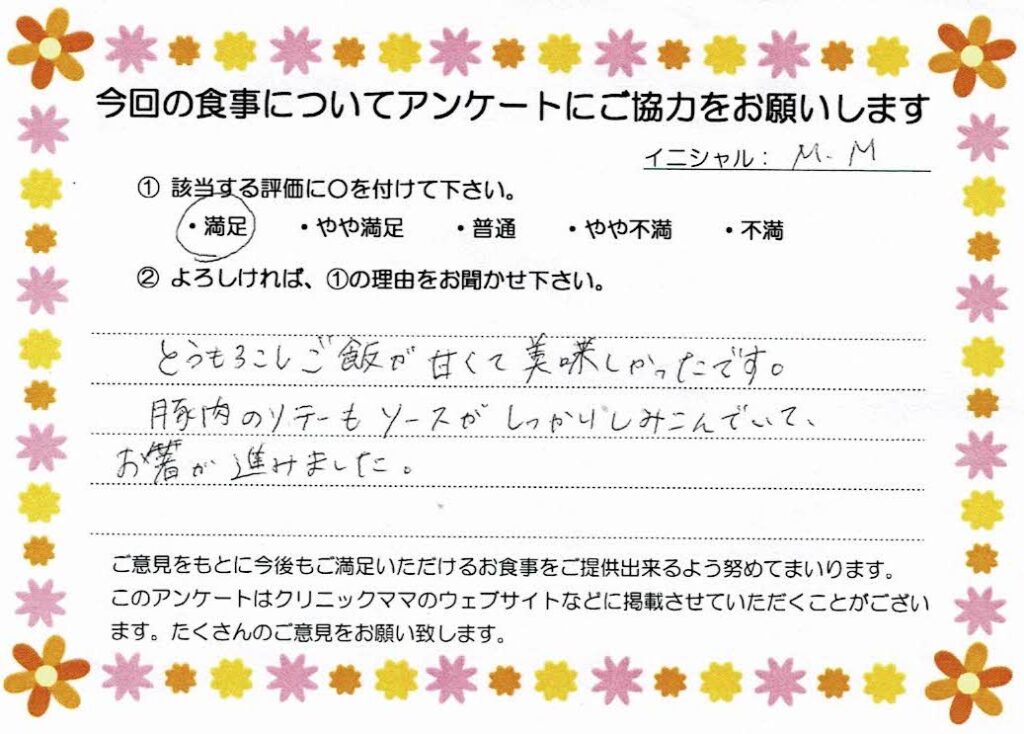 今回の食事についてアンケートにご協力をお願いします
イニシャル： M.M
① 該当する評価に〇を付けて下さい。
・満足 ・やや満足 ・普通 ・やや不満 ・不満
② よろしければ、①の理由をお聞かせ下さい。
とうもろこしご飯が甘くて美味しかったです。
豚肉のソテーもソースがしっかりしみこんでいて、
お箸が進みました。
ご意見をもとに今後もご満足いただけるお食事をご提供出来るよう努めてまいります。
このアンケートはクリニックママのウェブサイトなどに掲載させていただくことがござい
ます。たくさんのご意見をお願い致します。